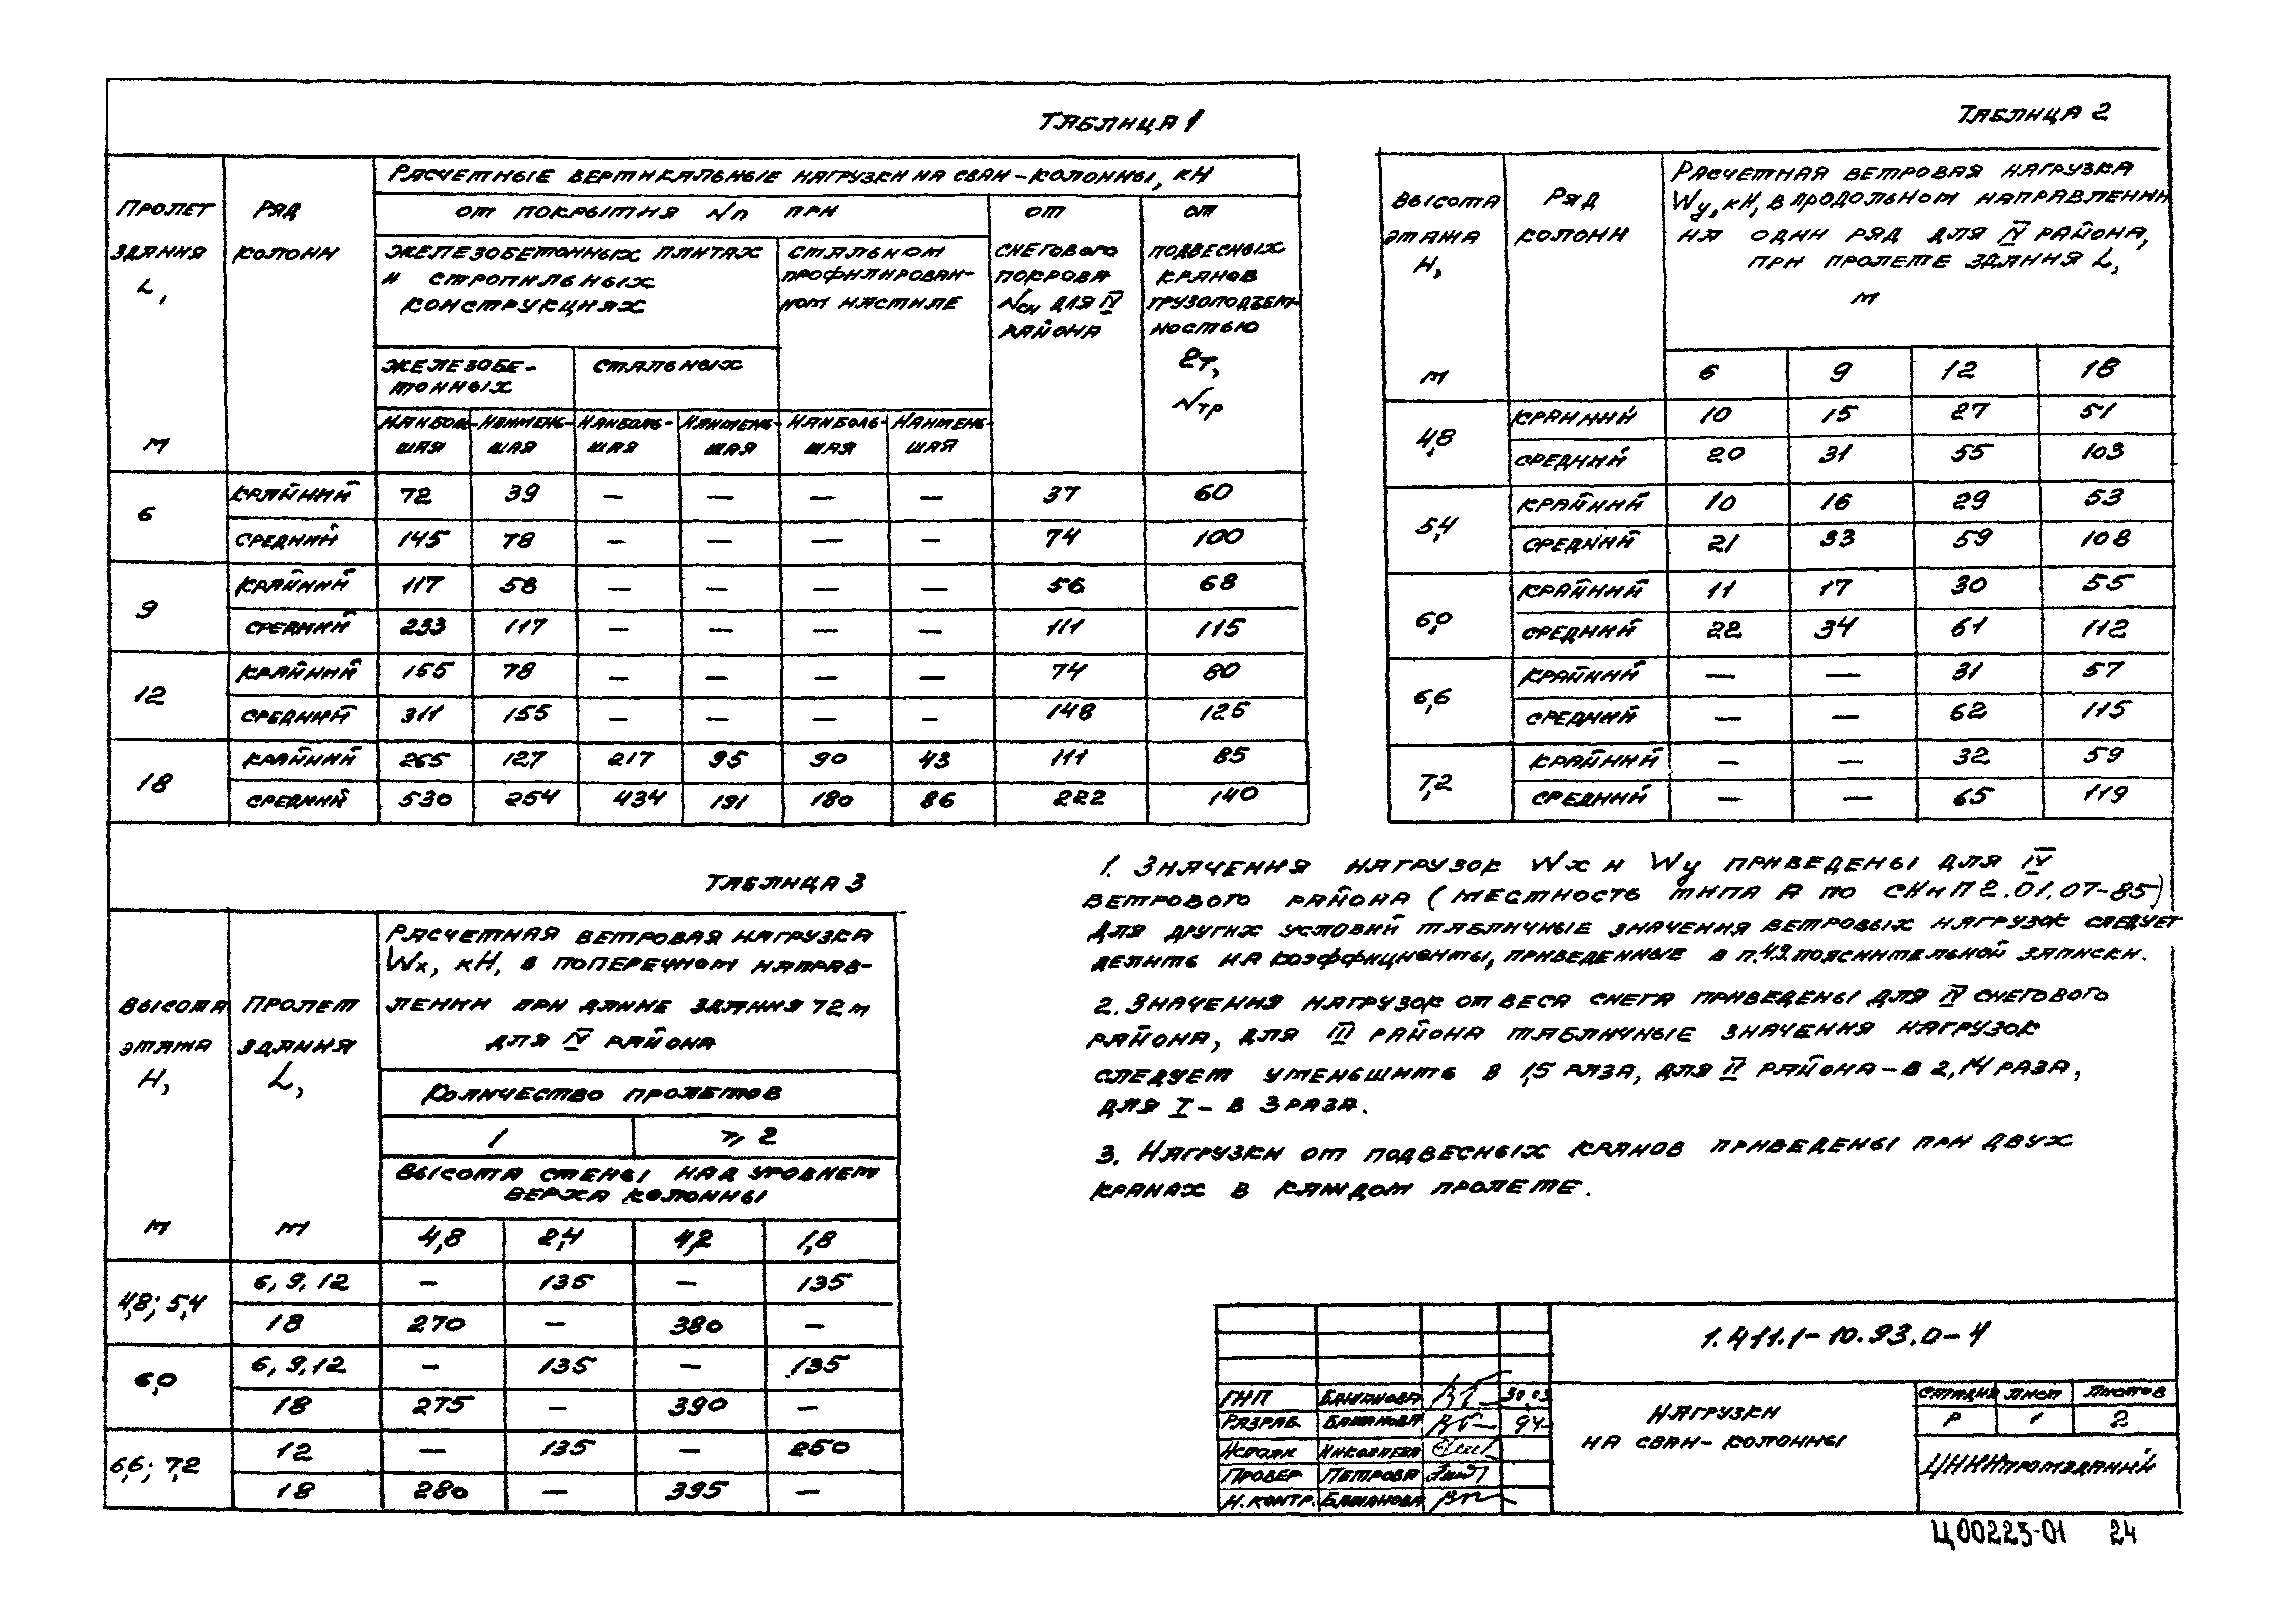 Таблица 1
Пролет здания L, м
Ряд колонн
Расчетные вертикальные нагрузки на сваи-колонны, кН
от покрытия Nп при
от снегового покрова Nсн для IV района
от подвесных кранов грузоподъемностью 2т, Nтр
железобетонных плитах и стропильных конструкциях
стальном профилированном настиле
железобетонных
стальных
Наибольшая Наименьшая Наибольшая Наименьшая Наибольшая Наименьшая
6 крайний 72 39 — — — — 37 60
средний 145 78 — — — — 74 100
9 крайний 117 58 — — — — 56 68
средний 233 117 — — — — 111 115
12 крайний 155 78 — — — — 74 80
средний 311 155 — — — — 148 125
18 крайний 265 127 217 95 90 43 111 85
средний 530 254 434 191 180 86 222 140
Таблица 2
Высота этажа H, м
Ряд колонн
Расчетная ветровая нагрузка
Wy, кН, в продольном направлении
на один ряд для IV района,
при пролете здания L,
м
6 9 12 18
4,8 крайний 10 15 27 51
средний 20 31 55 103
5,4 крайний 10 16 29 53
средний 21 33 59 108
6,0 крайний 11 17 30 55
средний 22 34 61 112
6,6 крайний — — 31 57
средний — — 62 115
7,2 крайний — — 32 59
средний — — 65 119
Таблица 3
Высота этажа H, м
Пролет здания L, м
Расчетная ветровая нагрузка
Wx, кН, в поперечном направ-
лении при длине здания 72 м
для IV района
Количество пролетов
1 ⩾ 2
Высота стены над уровнем
верха колонны
4,8 2,4 4,2 1,8
4,8; 5,4 6, 9, 12 — 135 — 135
18 270 — 380 —
6,0 6, 9, 12 — 135 — 135
18 275 — 390 —
6,6; 7,2 12 — 135 — 250
18 280 — 395 —
1. Значения нагрузок Wx и Wy приведены для IV
ветрового района (местность типа А по СНиП 2.01.07-85)
Для других условий табличные значения ветровых нагрузок следует
делить на коэффициенты, приведенные в п.4.9. пояснительной записки.
2. Значения нагрузок от веса снега приведены для IV снегового
района, для III района табличные значения нагрузок
следует уменьшить в 1,5 раза, для II района - в 2,14 раза,
для I - в 3 раза.
3. Нагрузки от подвесных кранов приведены при двух
кранах в каждом пролете.
1.411.1-10.93.0-4
ГИП 30.03
Разраб. 94
Исполн. Николаева
Провер Петрова
Н.контр.
Нагрузки
на сваи-колонны
Стадия Лист Листов
Р 1 2
ЦНИИпромзданий
Ц00225-01 24